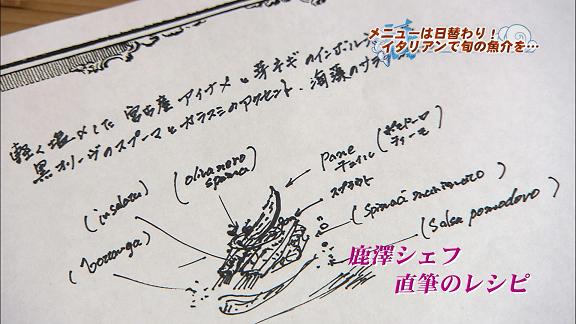 メニューは日替わり！
イタリアンで旬の魚介を…
軽く燻〆した 宮古産 アイナメと芽ネギのインボルティーニ
黒オリーブのスプーマとカラスミのアクセント、海藻のサラダ
(olive nero spuma)
Pane
チュイル
(ポモドーロ ティーモ)
(insalata)
スプラウト
(bottarga)
(Salsa pomodoro)
鹿澤シェフ
直筆のレシピ